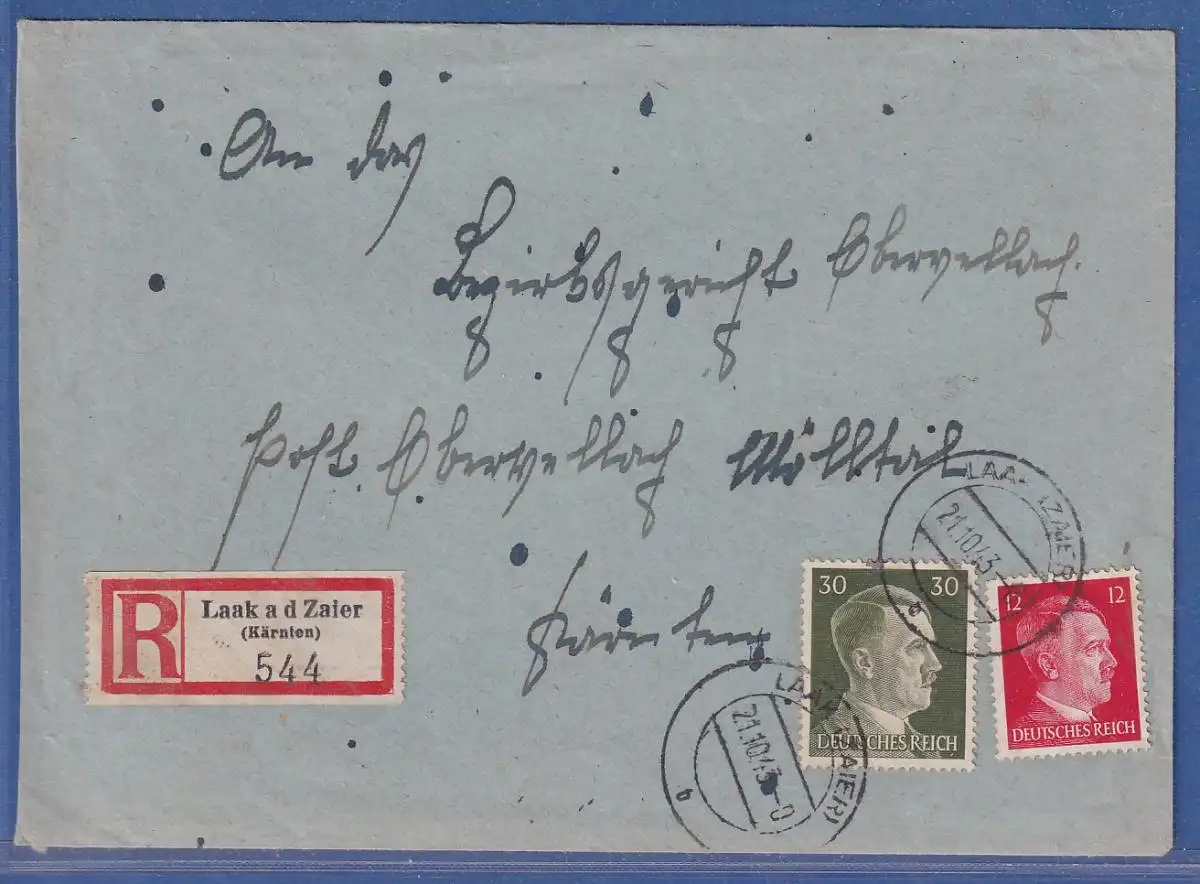 An das
Bezirksgericht Obervellach.
Post. Obervellach Mölltal
Kärnten
R
Laak a d Zaier
(Kärnten)
544
30 30
DEUTSCHES REICH
12 12
DEUTSCHES REICH
LAAK (ZAIER)
21.10.43
b
LAAK (ZAIER)
21.10.43-0
b